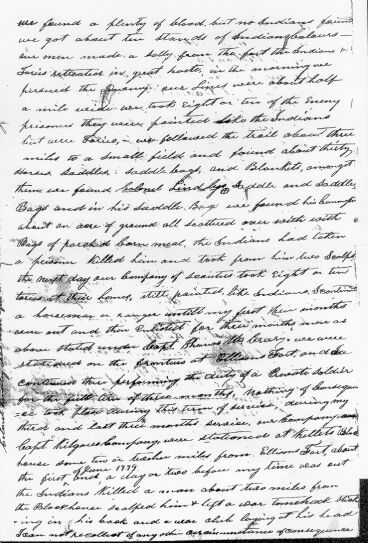 we found a plenty of blood, but no Indians found
we got about ten stands of Indian
our men made a Solly from the fort the Indians &
Tories retreated in great haste, in the morning we
pursued the Enemy our Lines were about half
a mile wide we took Eight or ten of the Enemy
prisoners they weere painted like the Indians
but were Tories, we followed the trail about three
miles to a Small field and found about thirty
Horses, Saddles, Saddle bags, and Blankets, amongst
them we found Colonel Saddle and Saddle
Bags and in his Saddle Bag we found his
about an acre of ground all scattered over with with
Bags of parched Corn meal, the Indians had taken
a prisoner killed him and took from him two Scalps
the next day our Company of Scouters took Eight or ten
tories at their homes, still painted like Indians, I continued
a horseman or ranger untill my first three months
were out and then Enlisted for three months more as
above stated under Capt. Thomas McCrary, we were
stationed on the frontier at Ellisons Fort, and
continued there performing the duty of a Private Soldier
for the full term of three months, Nothing of Consequen
ce took place during this term of service, during my
third and last three months service, our Company
Capt Kilgores Company, were stationed at Kelletts Block
house some two or miles from Ellisons Fort, about
the first of June 1779 and a day or two before my time was out
the Indians killed a man about two miles from
the Blockhouse scalped him & left a war tomehack Stick
ing in his back and a war club laying at his head
I can not recollect of any other circumstance of consequence